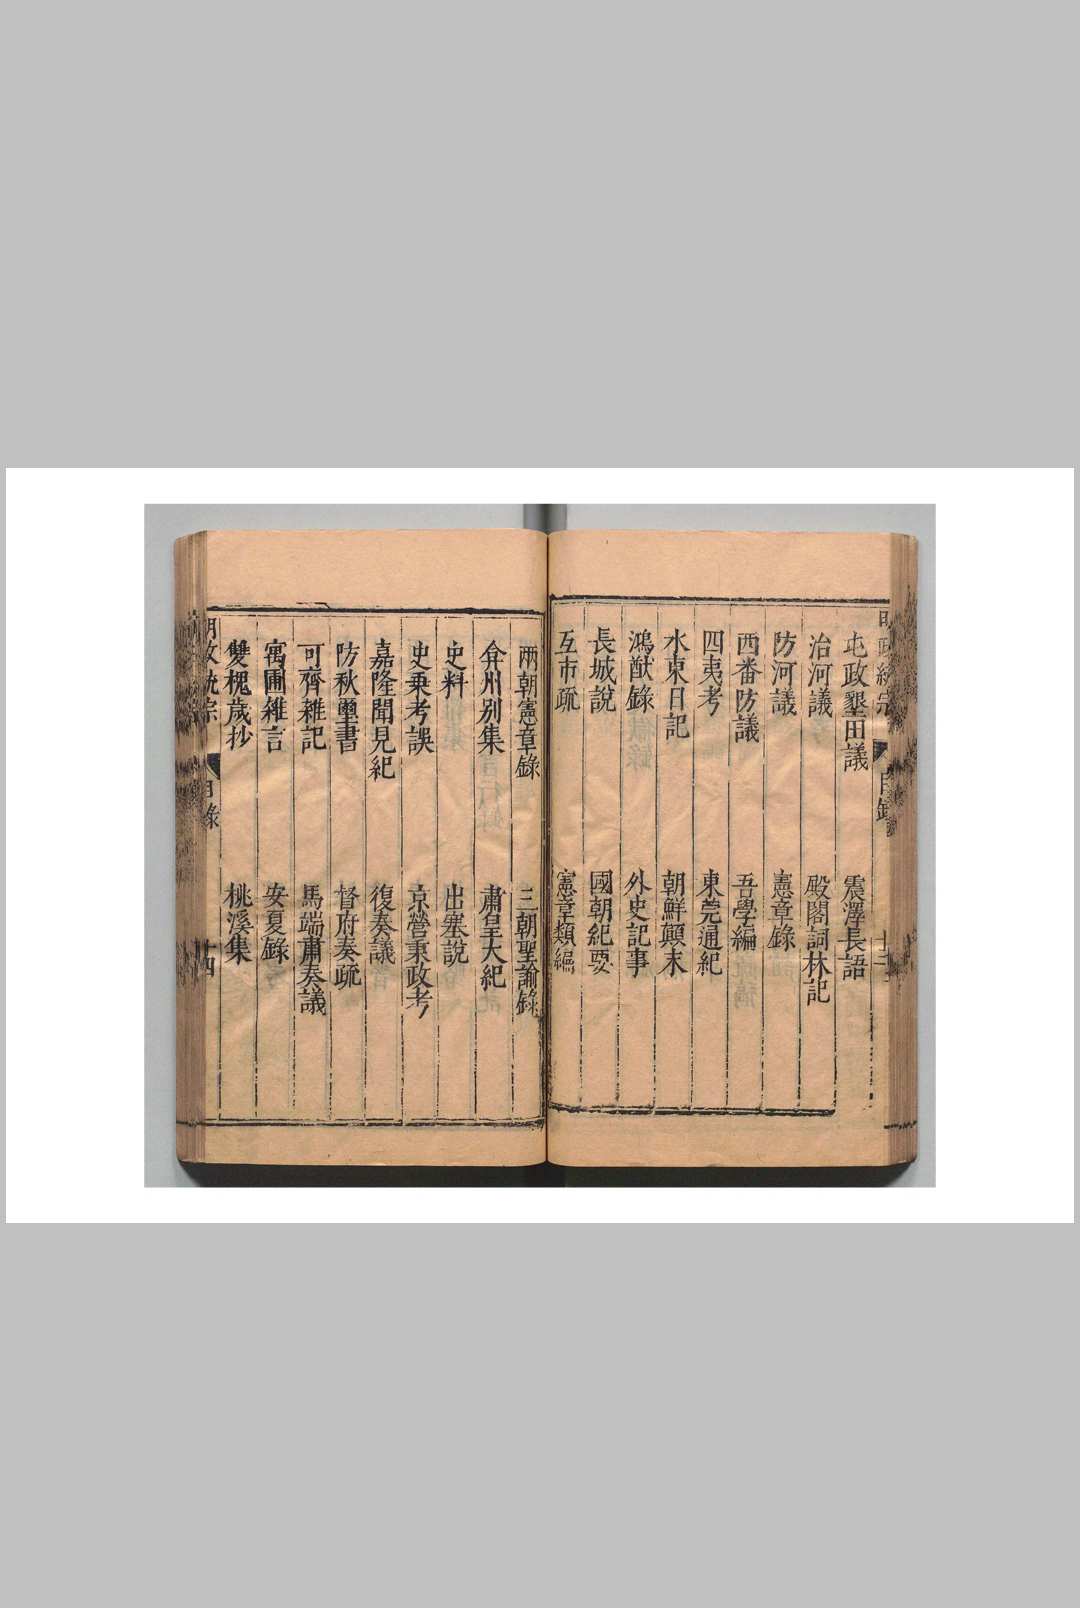 屯政墾田議 震澤長語
治河議 殿閣詞林記
防河議 憲章錄
西番防議 吾學編
四夷考 東莞通紀
水東日記 朝鮮顛末
鴻猷錄 外史記事
長城說 國朝紀要
互市疏 憲章類編
兩朝憲章錄 三朝聖諭錄
弇州別集 肅皇大紀
史料 出塞說
史乗考誤 京營秉政考
嘉隆聞見紀 復奏議
防秋璽書 督府奏疏
可齊雜記 馬端肅奏議
寓圃雜言 安夏錄
雙槐歲抄 桃溪集
明政統宗 目錄 十四